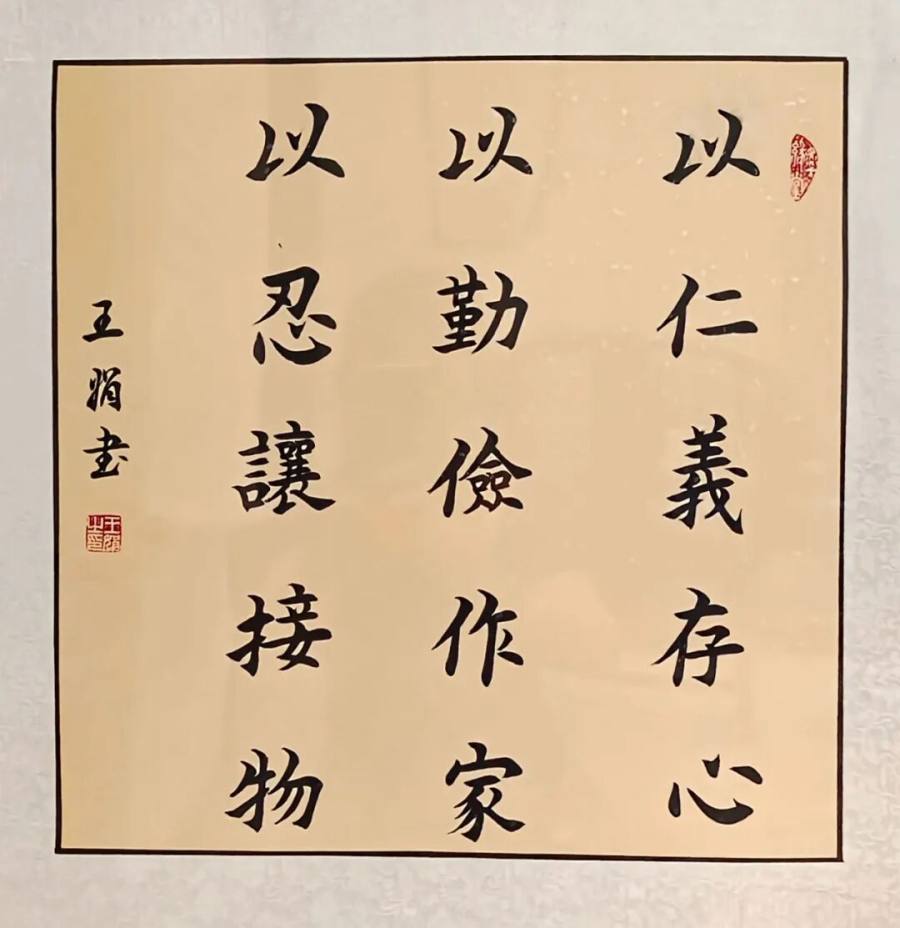 以仁義存心
以勤儉作家
以忍讓接物
王娟书